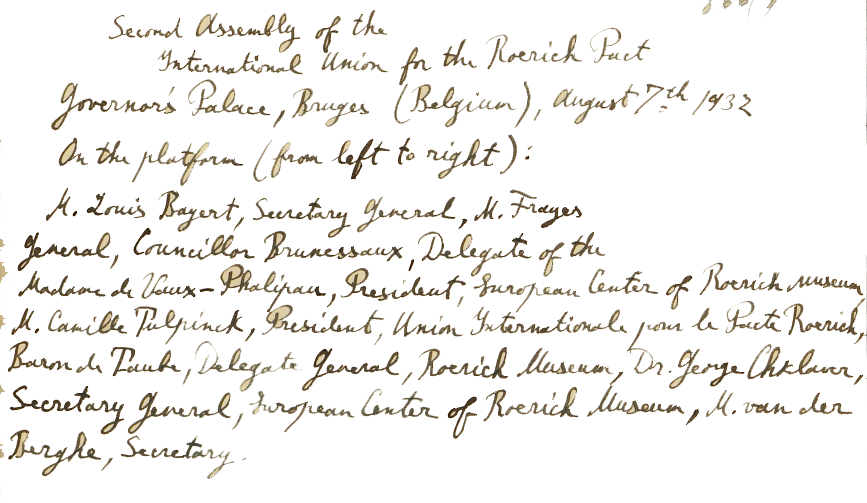 Second Assembly of the
International Union for the Roerich Pact
Governor's Palace, Bruges (Belgium), August 7th 1932
On the platform (from left to right):
M. Louis Bayert, Secretary General, M. Frayes
General, Councillor Brunessaux, Delegate of the
Madame de Vaux-Phalipau, President, European Center of Roerich Museum,
M. Camille Tulpinck, President, Union Internationale pour le Pacte Roerich,
Baron de Taube, Delegate General, Roerich Museum, Dr. George Chklaver,
Secretary General, European Center of Roerich Museum, M. van der
Berghe, Secretary.